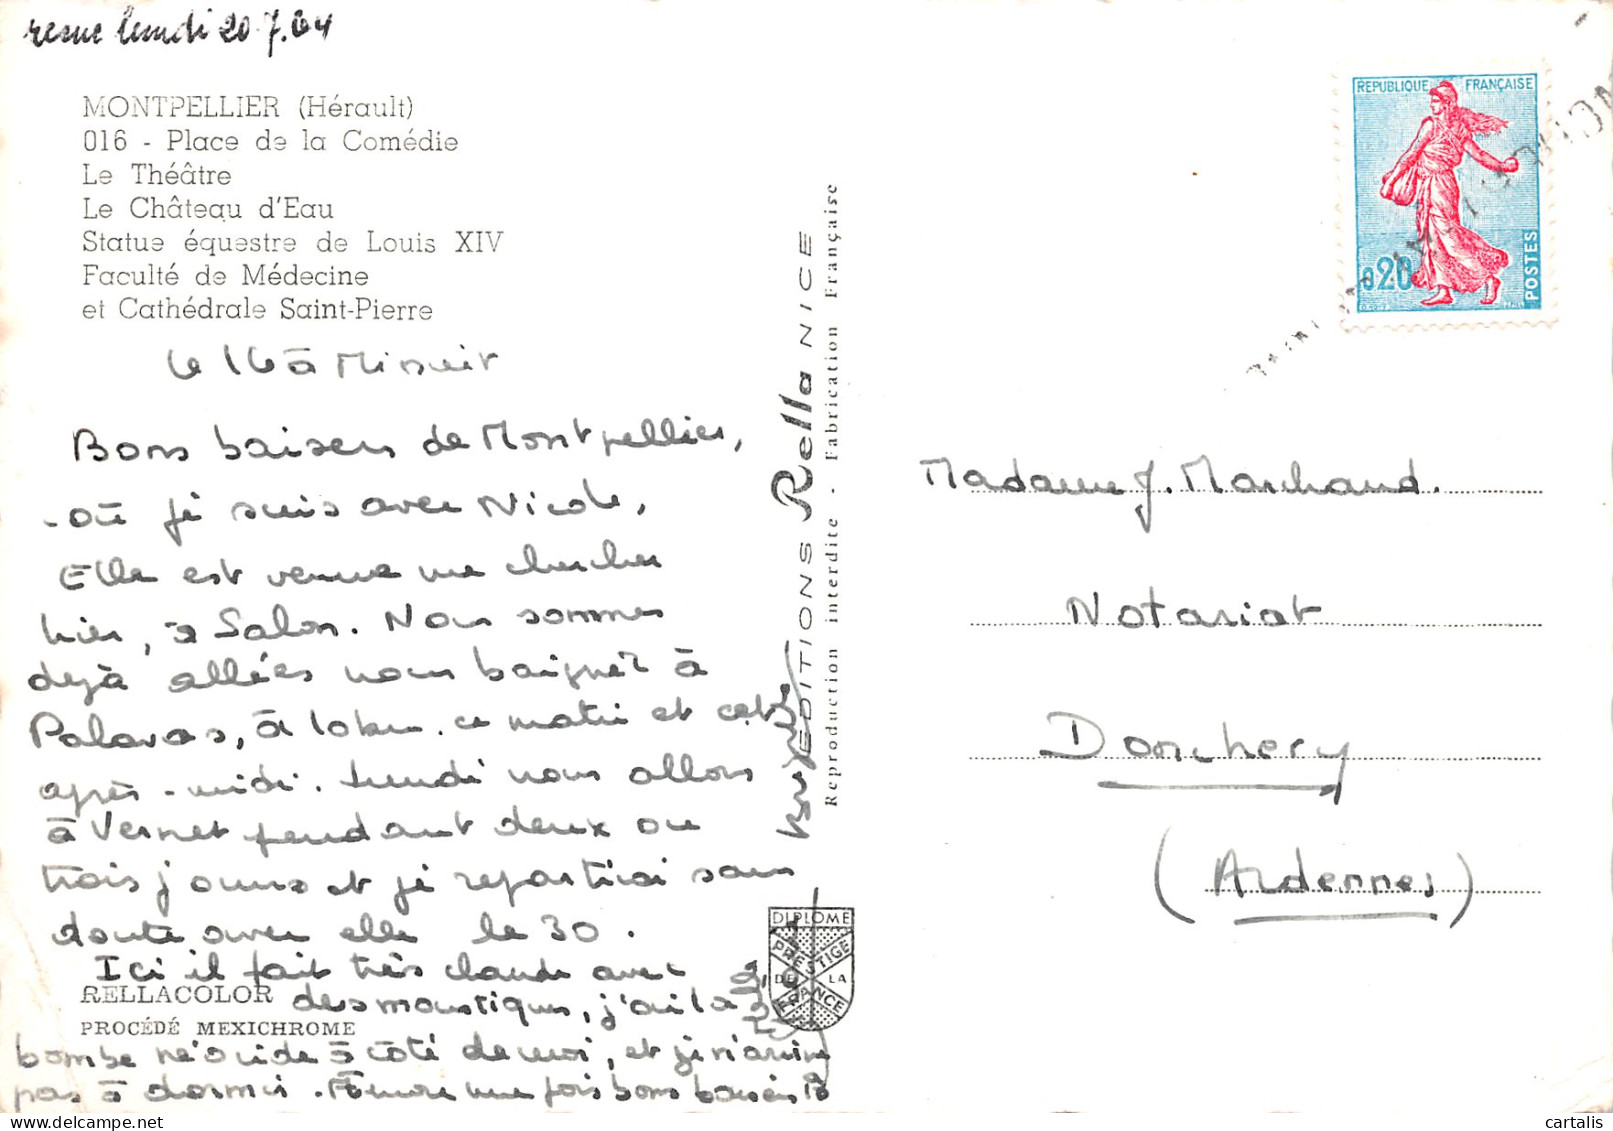 lundi 20.7.64
MONTPELLIER (Hérault)
016 - Place de la Comédie
Le Théâtre
Le Château d'Eau
Statue équestre de Louis XIV
Faculté de Médecine
et Cathédrale Saint-Pierre
le 16 à Minuit
Bons baisers de Montpellier,
où je suis avec Nicole,
Elle est venue me chercher
hier, à Salon. Nous sommes
dejà allées nous baigner à
Palavas, à ce matin et cet
après-midi. Lundi nous allons
à Vernet pendant deux ou
trois jours et je repartirai sans
doute avec elle le 30.
Ici il fait très chaud avec
des moustiques, j'ai la
bombe néocide à côté de moi, et je n'arrive
pas à dormir. Encore une fois bons baisers
RELLACOLOR
PROCÉDÉ MEXICHROME
EDITIONS Rella NICE
Reproduction interdite - Fabrication Française
DIPLOME
PRESTIGE
DE LA
FRANCE
REPUBLIQUE FRANÇAISE
0,20
POSTES
Madame J. Marchand.
Notariat
Donchery
(Ardennes)
cartalis